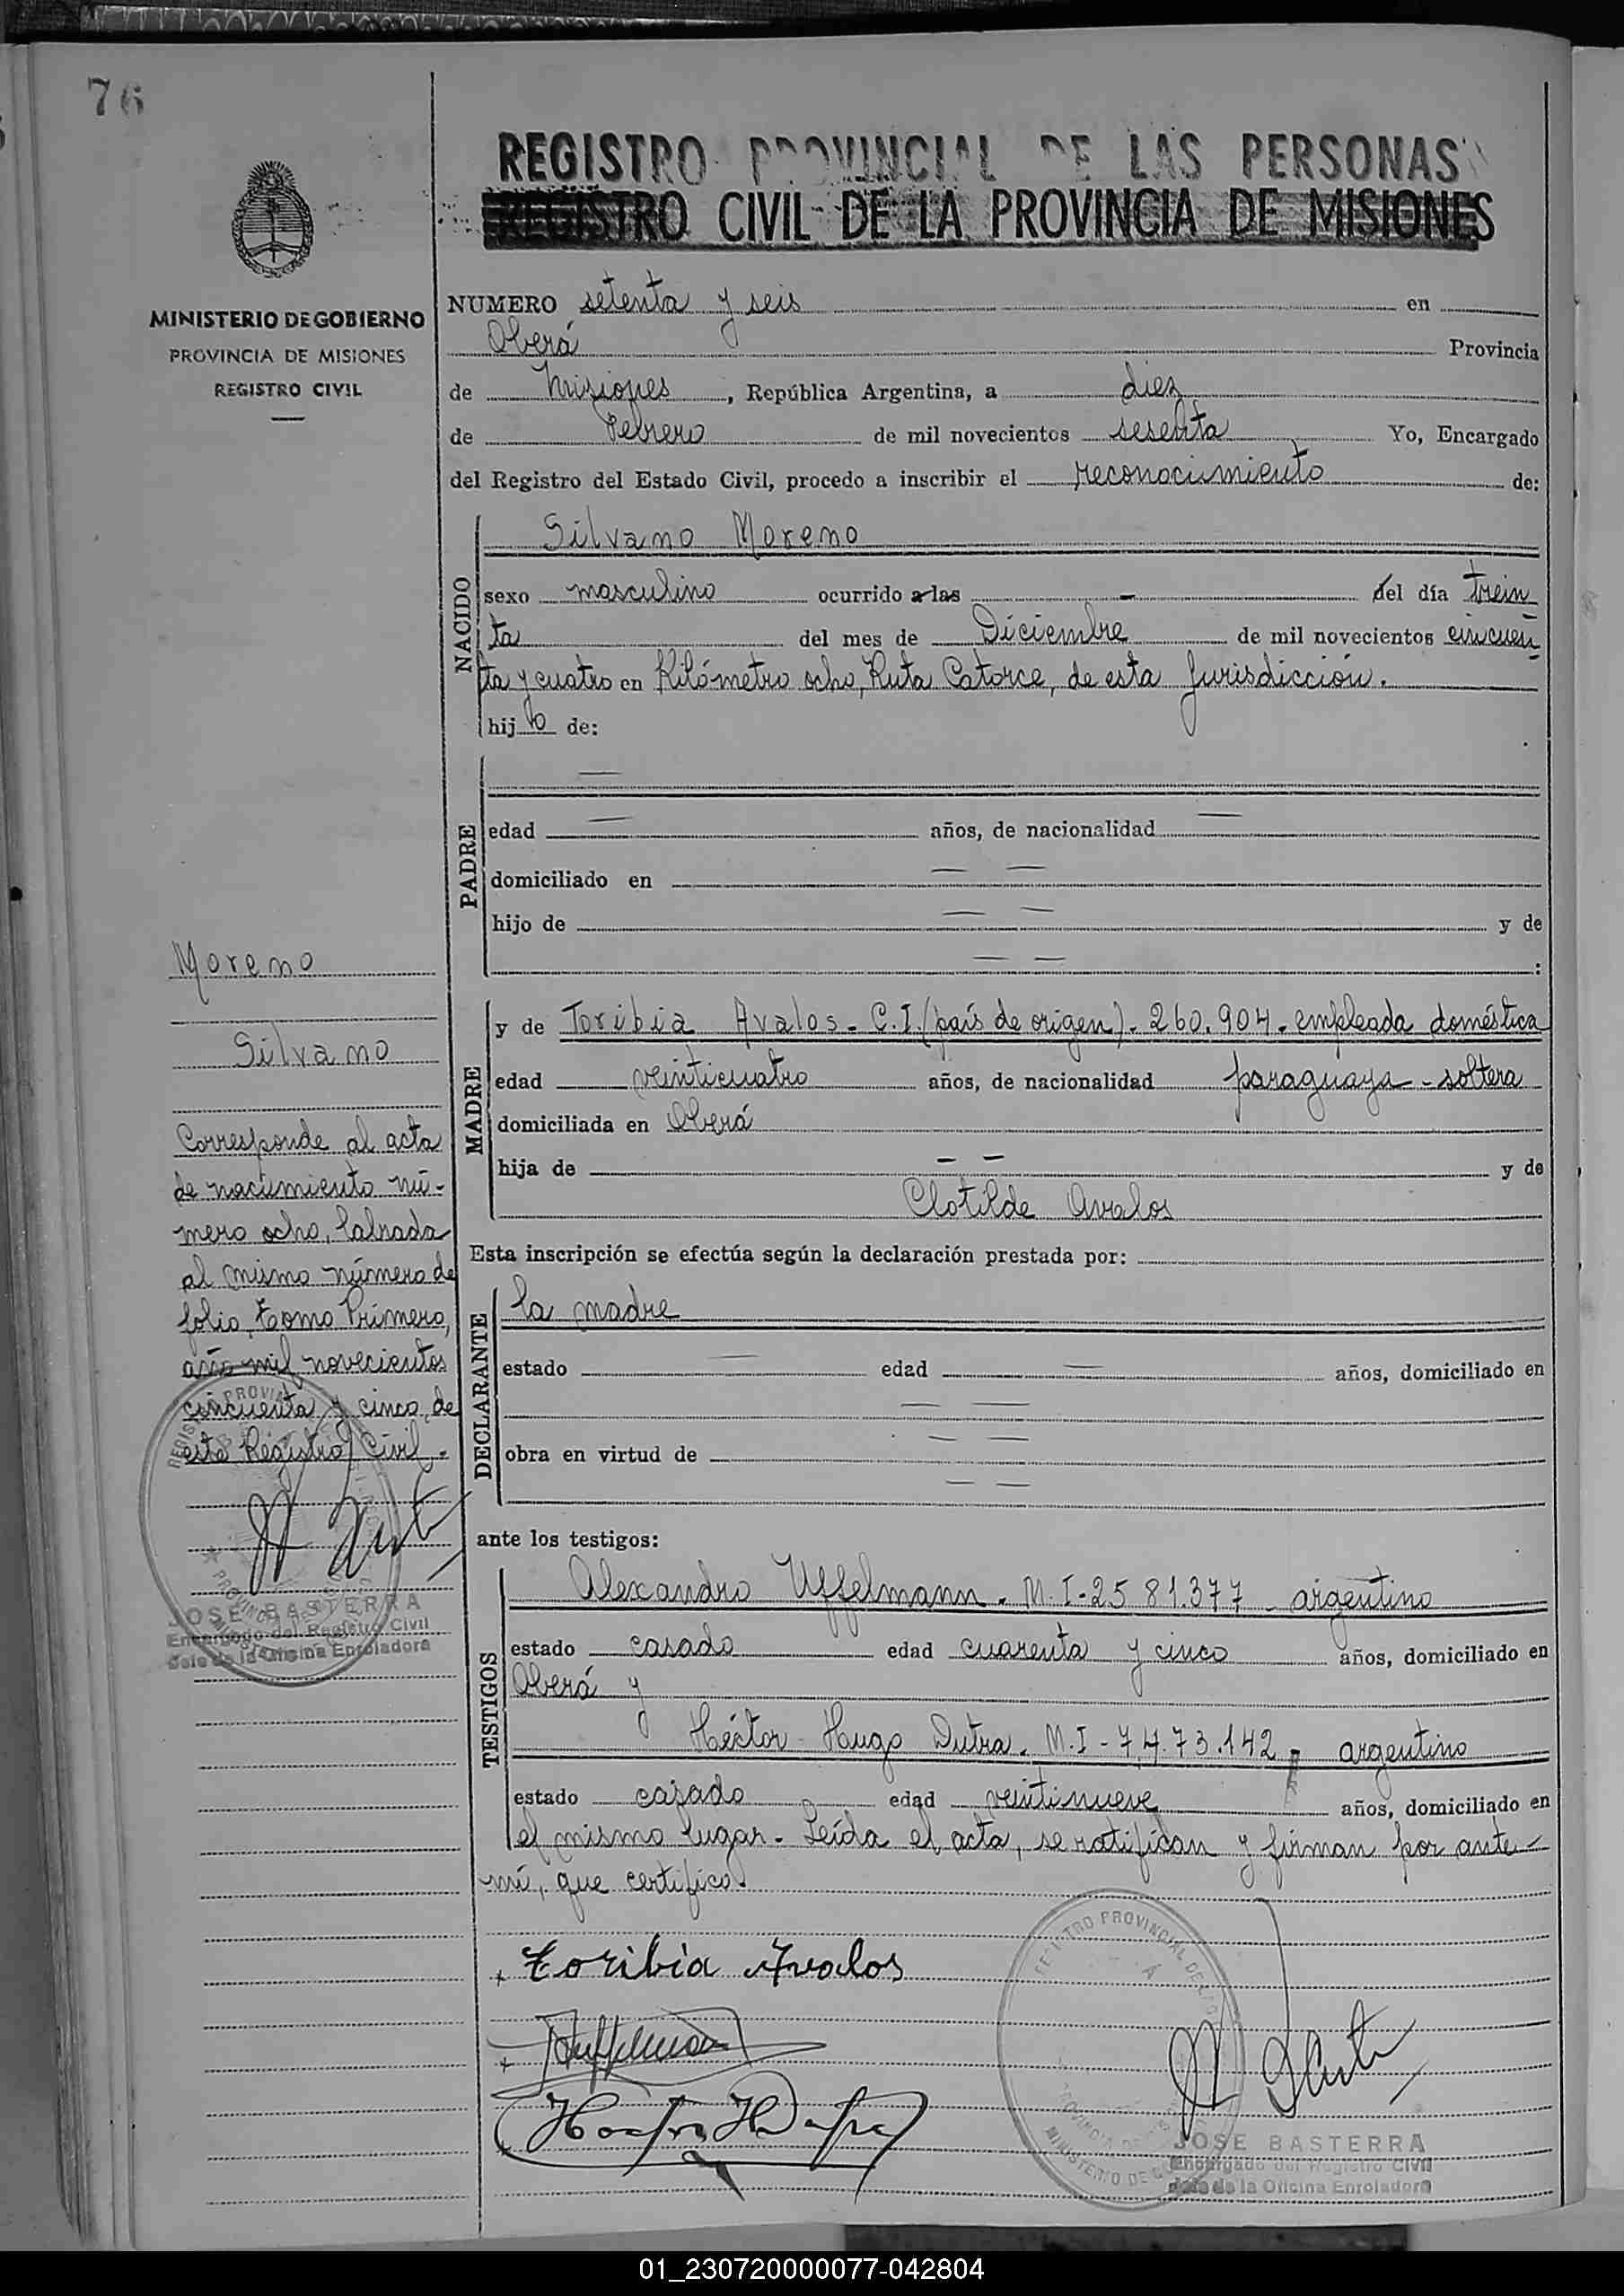 76
REGISTRO PROVINCIAL DE LAS PERSONAS
REGISTRO CIVIL DE LA PROVINCIA DE MISIONES
MINISTERIO DE GOBIERNO
PROVINCIA DE MISIONES
REGISTRO CIVIL
NUMERO setenta y seis en
Oberá Provincia
de Misiones, República Argentina, a diez
de Febrero de mil novecientos sesenta Yo, Encargado
del Registro del Estado Civil, procedo a inscribir el reconocimiento de:
NACIDO
Silvano Moreno
sexo masculino ocurrido a las - del día trein
ta del mes de Diciembre de mil novecientos cincuen
ta y cuatro en Kilómetro ocho, Ruta Catorce, de esta Jurisdicción.
hijo de:
PADRE
—
edad — años, de nacionalidad —
domiciliado en — —
hijo de — — y de
— — :
MADRE
y de Toribia Avalos - C.I. (país de origen) - 260.904 - empleada doméstica
edad veinticuatro años, de nacionalidad paraguaya - soltera
domiciliada en Oberá
hija de — — y de
Clotilde Avalos
Esta inscripción se efectúa según la declaración prestada por:
DECLARANTE
la madre
estado — edad — años, domiciliado en
— —
obra en virtud de — —
— —
ante los testigos:
TESTIGOS
Alexandro Uffelmann - M.I-2581.377 - argentino
estado casado edad cuarenta y cinco años, domiciliado en
Oberá y
Héctor Hugo Dutra - M.I-7.473.142 - argentino
estado casado edad veintinueve años, domiciliado en
el mismo lugar - Leída el acta, se ratifican y firman por ante
mí, que certifico.
Toribia Avalos
JOSE BASTERRA
Encargado del Registro Civil
Jefe de la Oficina Enroladora
Moreno
Silvano
Corresponde al acta
de nacimiento nú-
mero ocho, labrada
al mismo número de
folio, Tomo Primero,
año mil novecientos
cincuenta y cinco, de
este Registro Civil.
JOSE BASTERRA
Encargado del Registro Civil
Jefe de la Oficina Enroladora
01_230720000077-042804